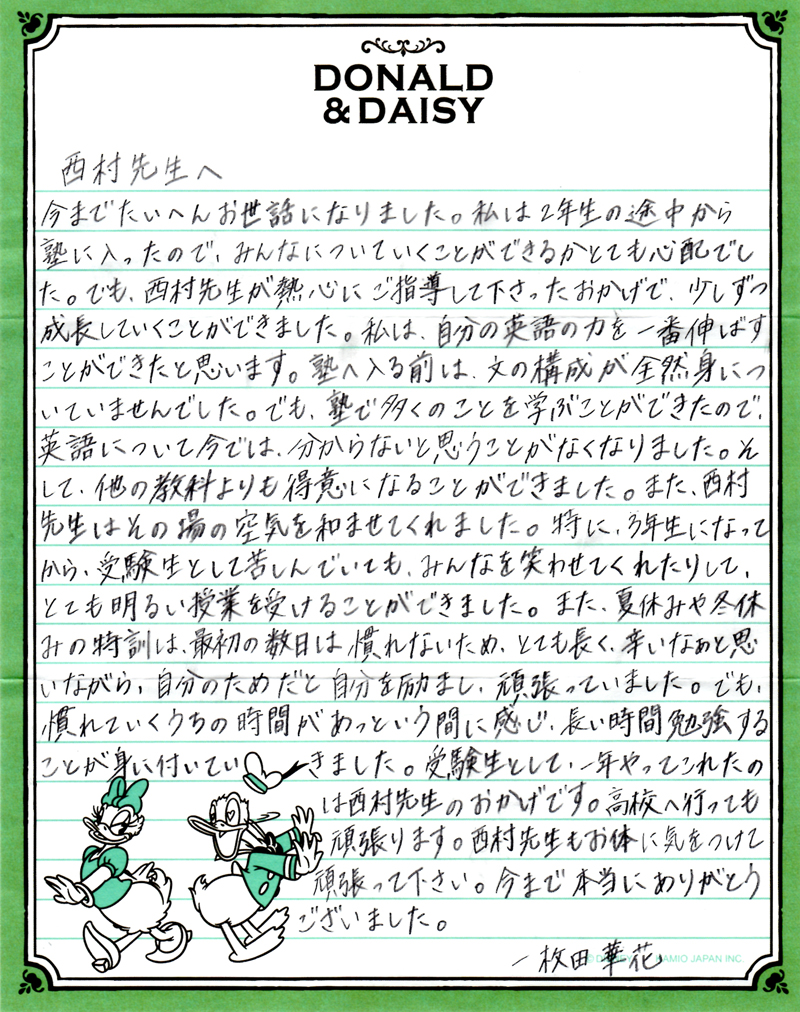 DONALD
& DAISY
西村先生へ
今までたいへんお世話になりました。私は2年生の途中から
塾に入ったので、みんなについていくことができるかとても心配でし
た。でも、西村先生が熱心にご指導して下さったおかげで、少しずつ
成長していくことができました。私は、自分の英語の力を一番伸ばす
ことができたと思います。塾へ入る前は、文の構成が全然身につ
いていませんでした。でも、塾で多くのことを学ぶことができたので、
英語について今では、分からないと思うことがなくなりました。そ
して、他の教科よりも得意になることができました。また、西村
先生はその場の空気を和ませてくれました。特に、3年生になって
から、受験生として苦しんでいても、みんなを笑わせてくれたりして、
とても明るい授業を受けることができました。また、夏休みや冬休
みの特訓は、最初の数日は慣れないため、とても長く、辛いなぁと思
いながら、自分のためだと自分を励まし、頑張っていました。でも、
慣れていくうちの時間があっという間に感じ、長い時間勉強する
ことが身に付いていきました。受験生として、一年やってこれたの
は西村先生のおかげです。高校へ行っても
頑張ります。西村先生もお体に気をつけて
頑張って下さい。今まで本当にありがとう
ございました。
一枚田 華花
© DISNEY KAMIO JAPAN INC.